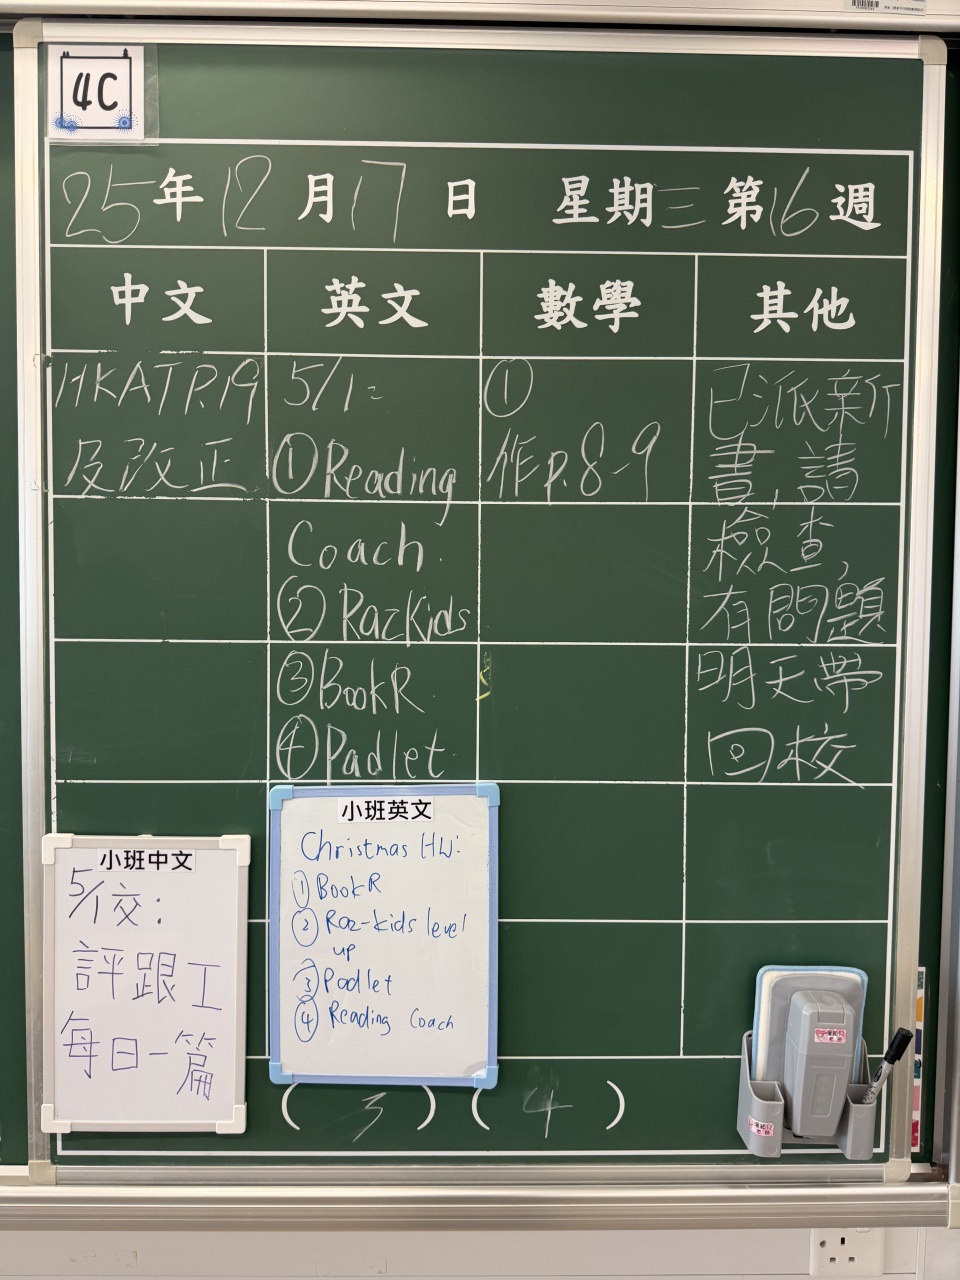 4C
25年12月17日 星期三第16週
中文
英文
數學
其他
HKAT P.19
及改正
5/1:
①Reading
Coach.
② RazKids
③BookR.
④Padlet.
①
作p.8-9
已派新
書,請
檢查,
有問題
明天帶
回校
小班中文
5/1交:
評跟工
每日一篇
小班英文
Christmas HW:
① BookR
② Raz-kids level
up
③ Padlet
④ Reading Coach
( 3 ) ( 4 )